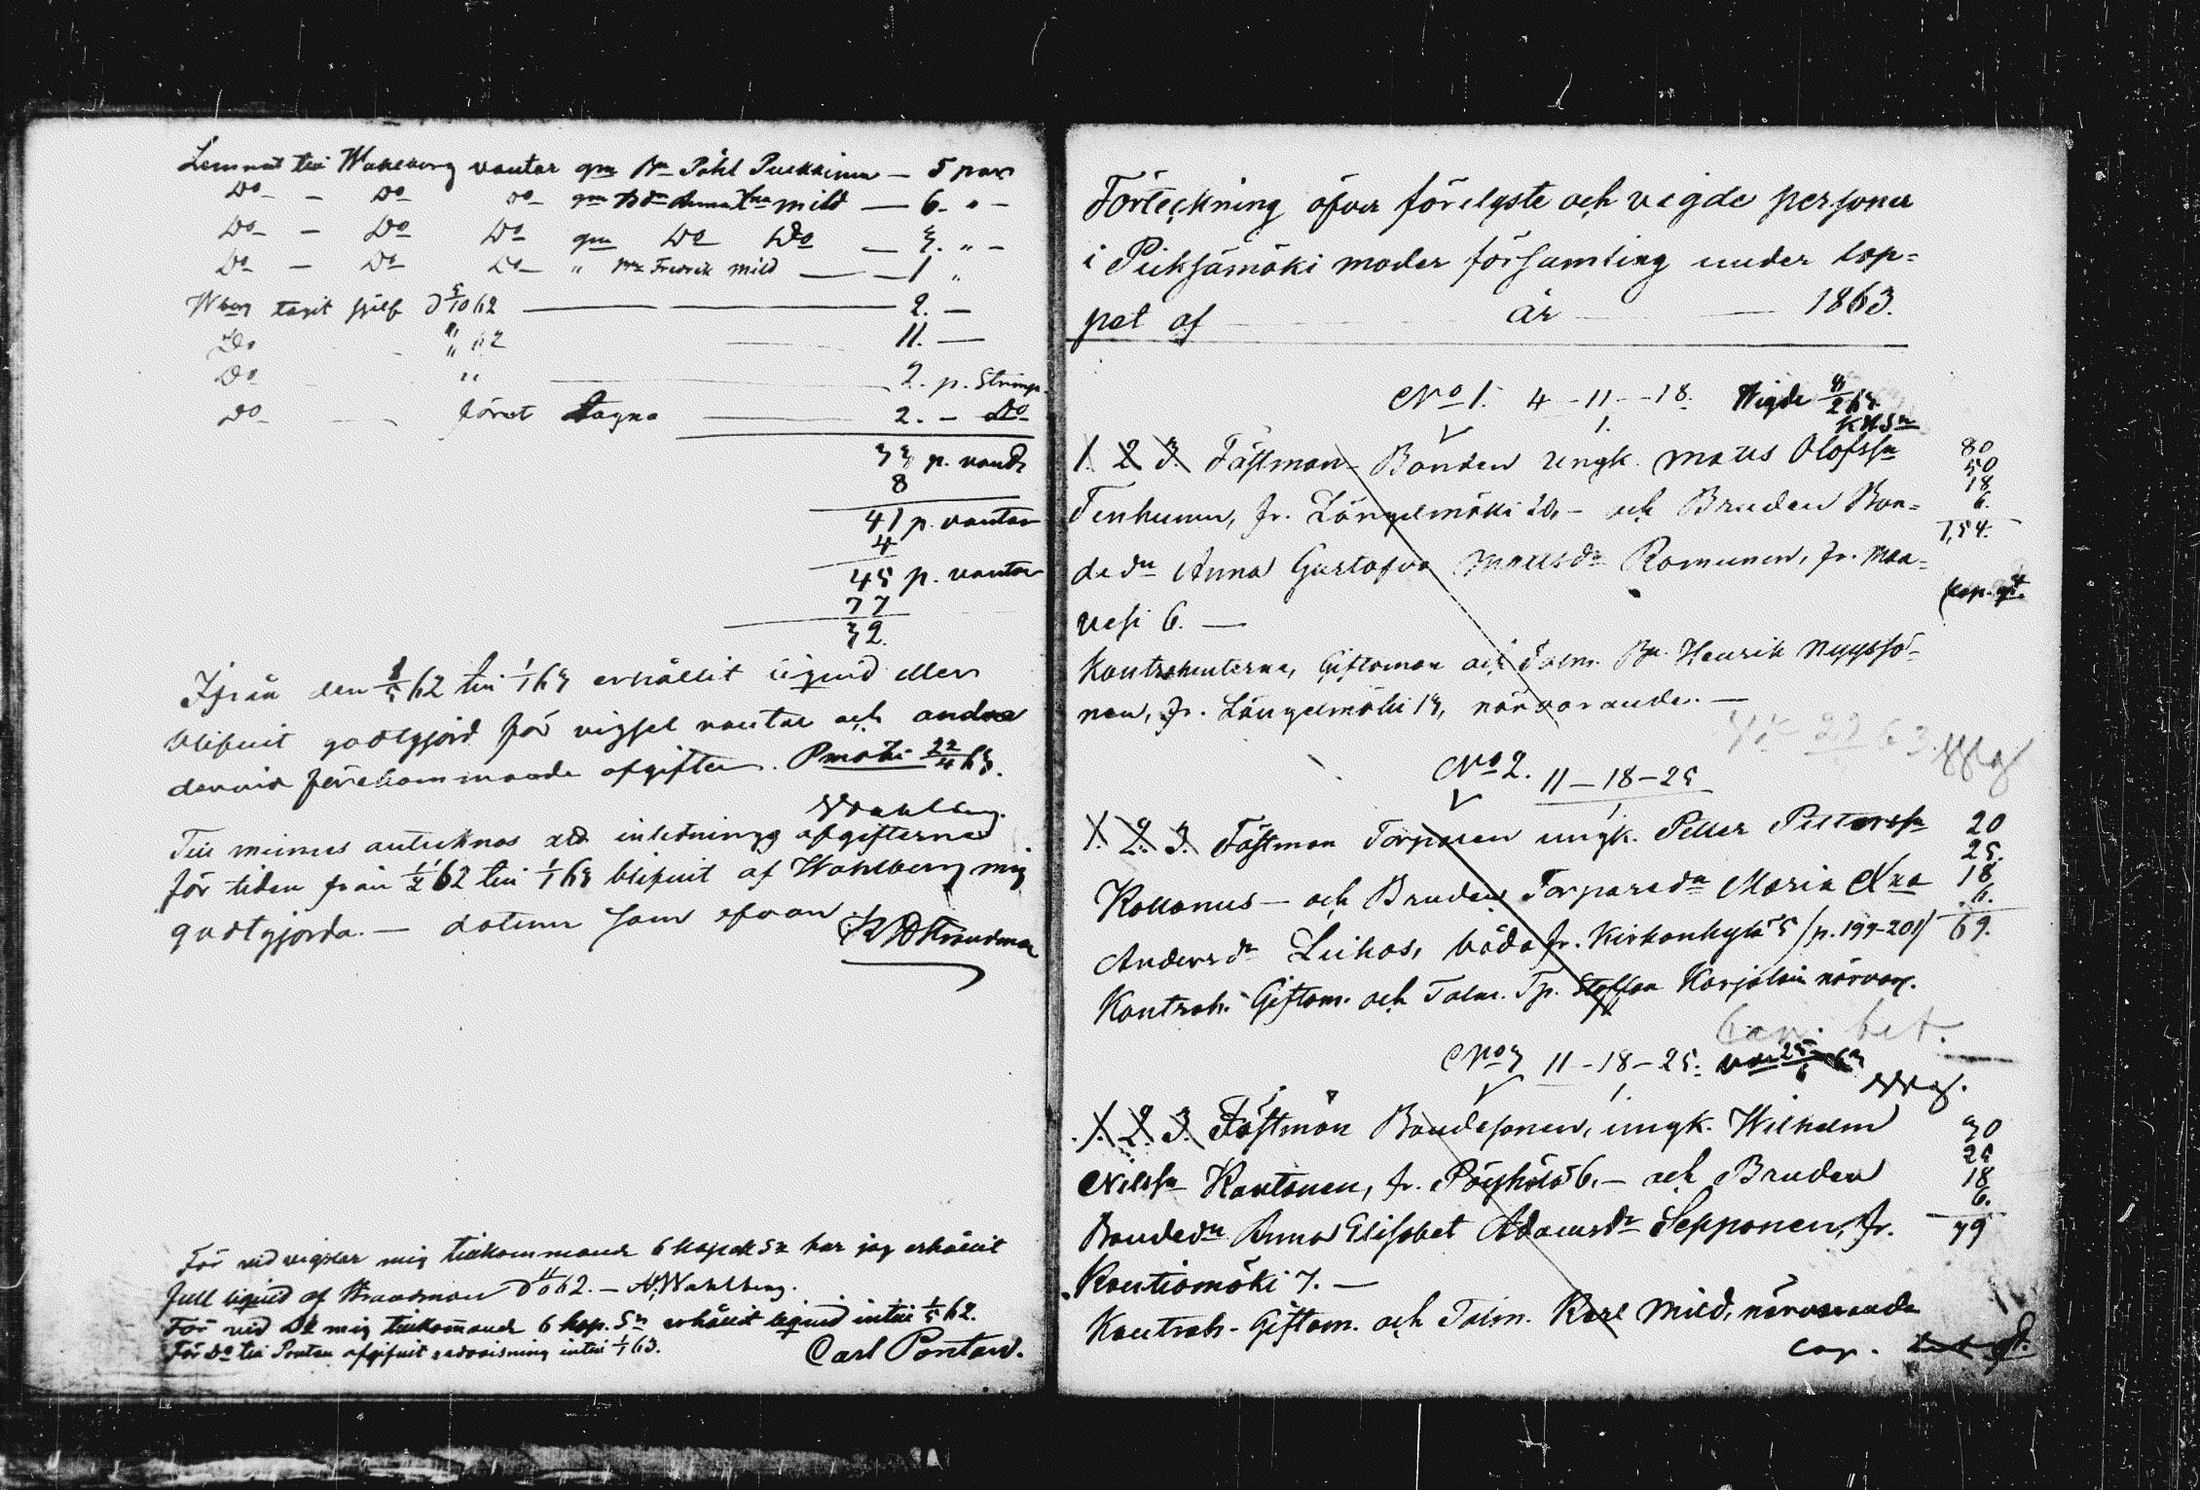 Lemnat till Wahlberg vantar gm Bn Påhl Puckinen — 5 par
Do — Do Do gm Bdn Anna Xna Mild — 6. " —
Do — Do Do gm Do Do — 3. " —
Do — Do Do " Bn Fredrik Mild — 1 "
Wberg tagit sjelf d 3/10 62 — 2. —
Do " " 62 — 11. —
Do " — 2. p. Strump.
Do förut tagna — 2. — Do
33 p. vantr
8
41 p. vantar
4
45 p. vantar
77
32.
Ifrån den 1/5 62 till 1/1 63 erhållit liquid eller
blifvit godtgjord för vigsel vantar och andra
dervid förekommande afgifter. Pmäki 22/4 63.
Wahlberg.
Till minnes antecknas att inledningsafgifterna
för tiden från 1/5 62 till 1/1 63 blifvit af Wahlberg mig
godtgjorda. — datum som ofvan
Strandman
För vid vigslar mig tillkommande 6 kopek Sr har jag erhållit
full liquid af Strandman d 11/10 62. — A. Wahlberg.
För vid Do mig tillkommande 6 kop. Sr erhållit liquid intill 1/5 62.
För Do till Pontan afgifvit redovisning intill 1/1 63.
Carl Pontan.
Förteckning öfver förelyste och vigde personer
i Pieksämäki moder församling under lop=
pet af år 1863.
No 1. 4 — 11 — 18. Vigde 8/2 63.
1. 2. 3. Fästman Bonden ungk. Mats Olofssn
Tenhunen, fr. Längelmäki 20, — och Bruden Bon=
dedn Anna Gustafva Mattsdr Romunen, fr. Maa=
vesi 6. —
Kontrahenterne, Giftoman och Talm. Bn Henrik Nyyssö=
nen, fr. Längelmäki 13, närvarande. —
80
50
18
6.
1,54.
kop. gt.
No 2. 11 — 18 — 25
1. 2. 3. Fästman Torparen ungk. Petter Petterssn
Kollanus — och Bruden Torparedn Maria Xna
Andersdr Leikas, båda fr. Kirkonkylä 5 (p. 199-201)
Kontrah. Giftom. och Talm. Tp. Staffan Karjalain närvar.
20
25.
18
6.
69.
bet.
No 3 11 — 18 — 25.
1. 2. 3. Fästman Bondesonen, ungk. Wilhelm
Nilssn Kantanen, fr. Pöyhölä 6, — och Bruden
Bondedn Anna Elisabet Adamsdr Sepponen, fr.
Kontiomäki 7. —
Kontrah. Giftom. och Talm. Karl Mild, närvarande
30
25
18
6.
79
cop. bet gt.